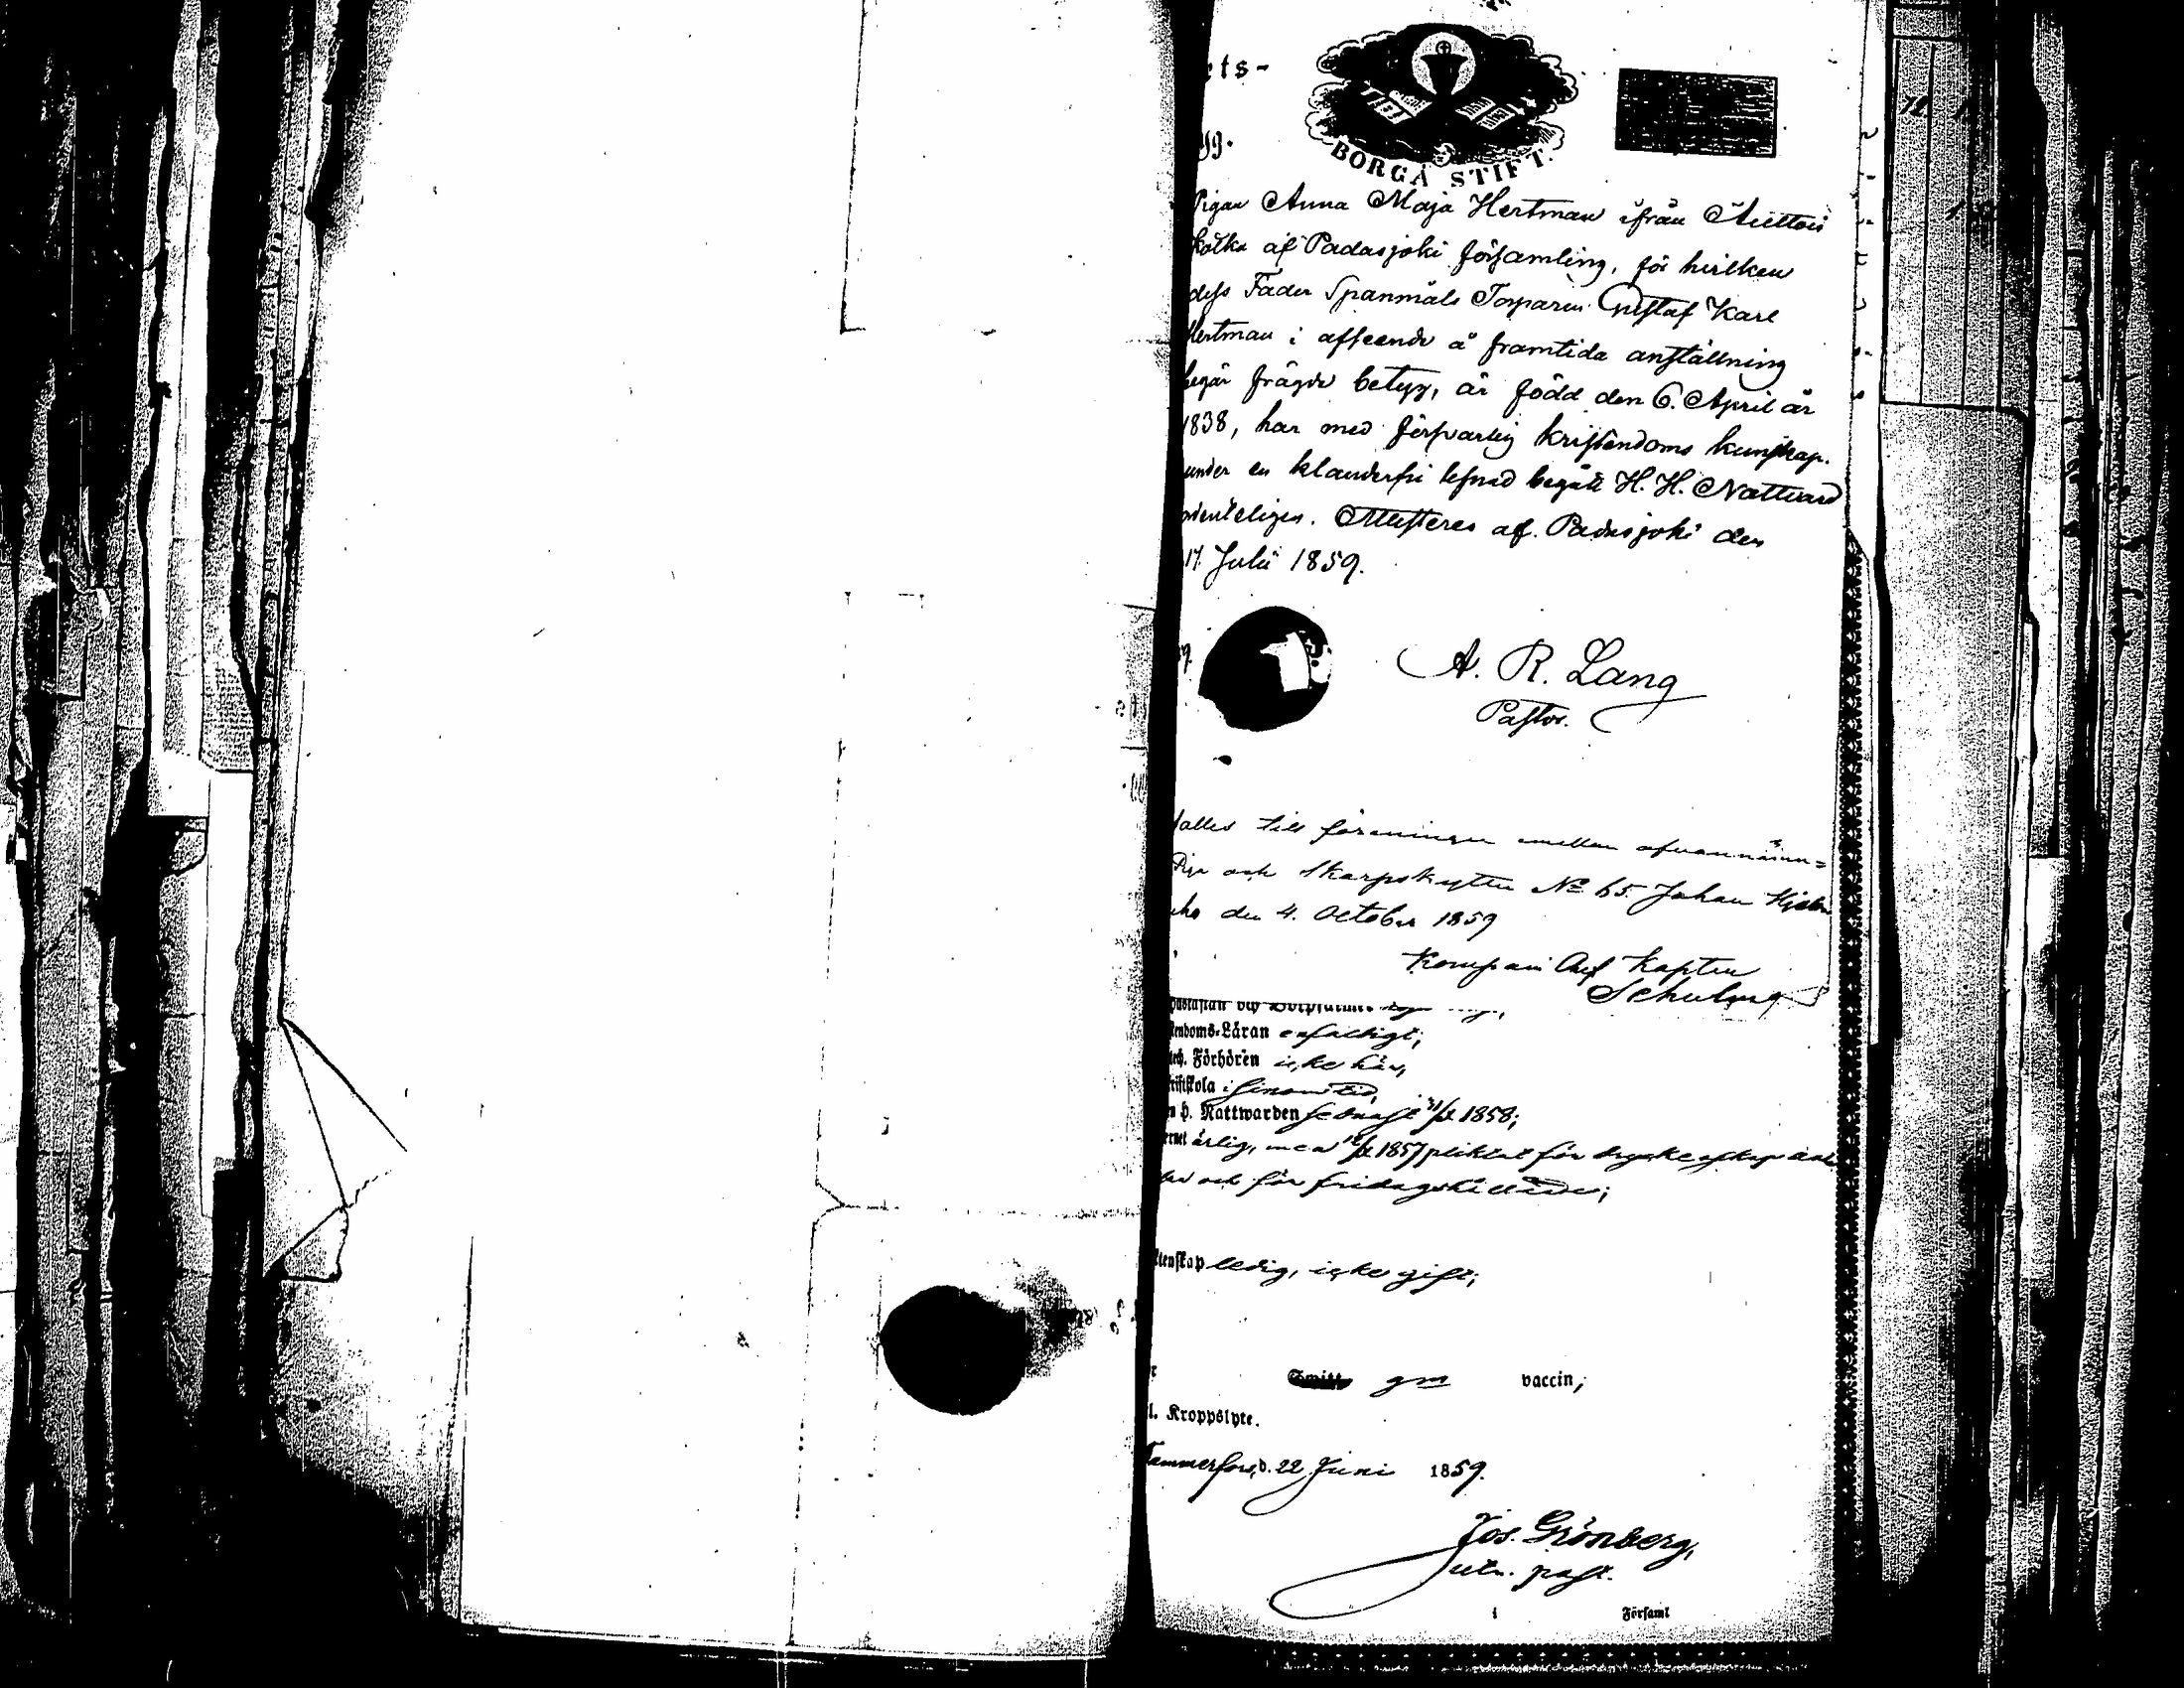 ets-
BORGÅ STIFT.
Pigan Anna Maja Hertman ifrån
af Padasjoki församling, för hvilken
dess Fader Spanmåls Torparen Gustaf Karl
Hertman i afseende å framtida anställning
begär frägde betyg, är född den 6. April år
1838, har med försvarlig kristendoms kunskap
under en klanderfri lefnad begått H. H. Nattvard
ordenteligen. Attesteres af. Padasjoki den
17. Julii 1859.
A. R. Lang
Pastor.
till föreningen emellan ofvannämn=
Piga och Skarpskytten No 65. Johan
den 4. October 1859
Kompani Chef Kapten
Läran enfaldigt;
Förhören icke här,
skola i sinom tid,
h. Nattwarden senast 31/ 1858;
ärlig, men 1857 pliktat för
och för
tenskap ledig, icke gift;
gm vaccin;
l. Kroppslyte.
Tammerfors, d. 22 Juni 1859.
Jos. Grönberg,
past.
i Församl